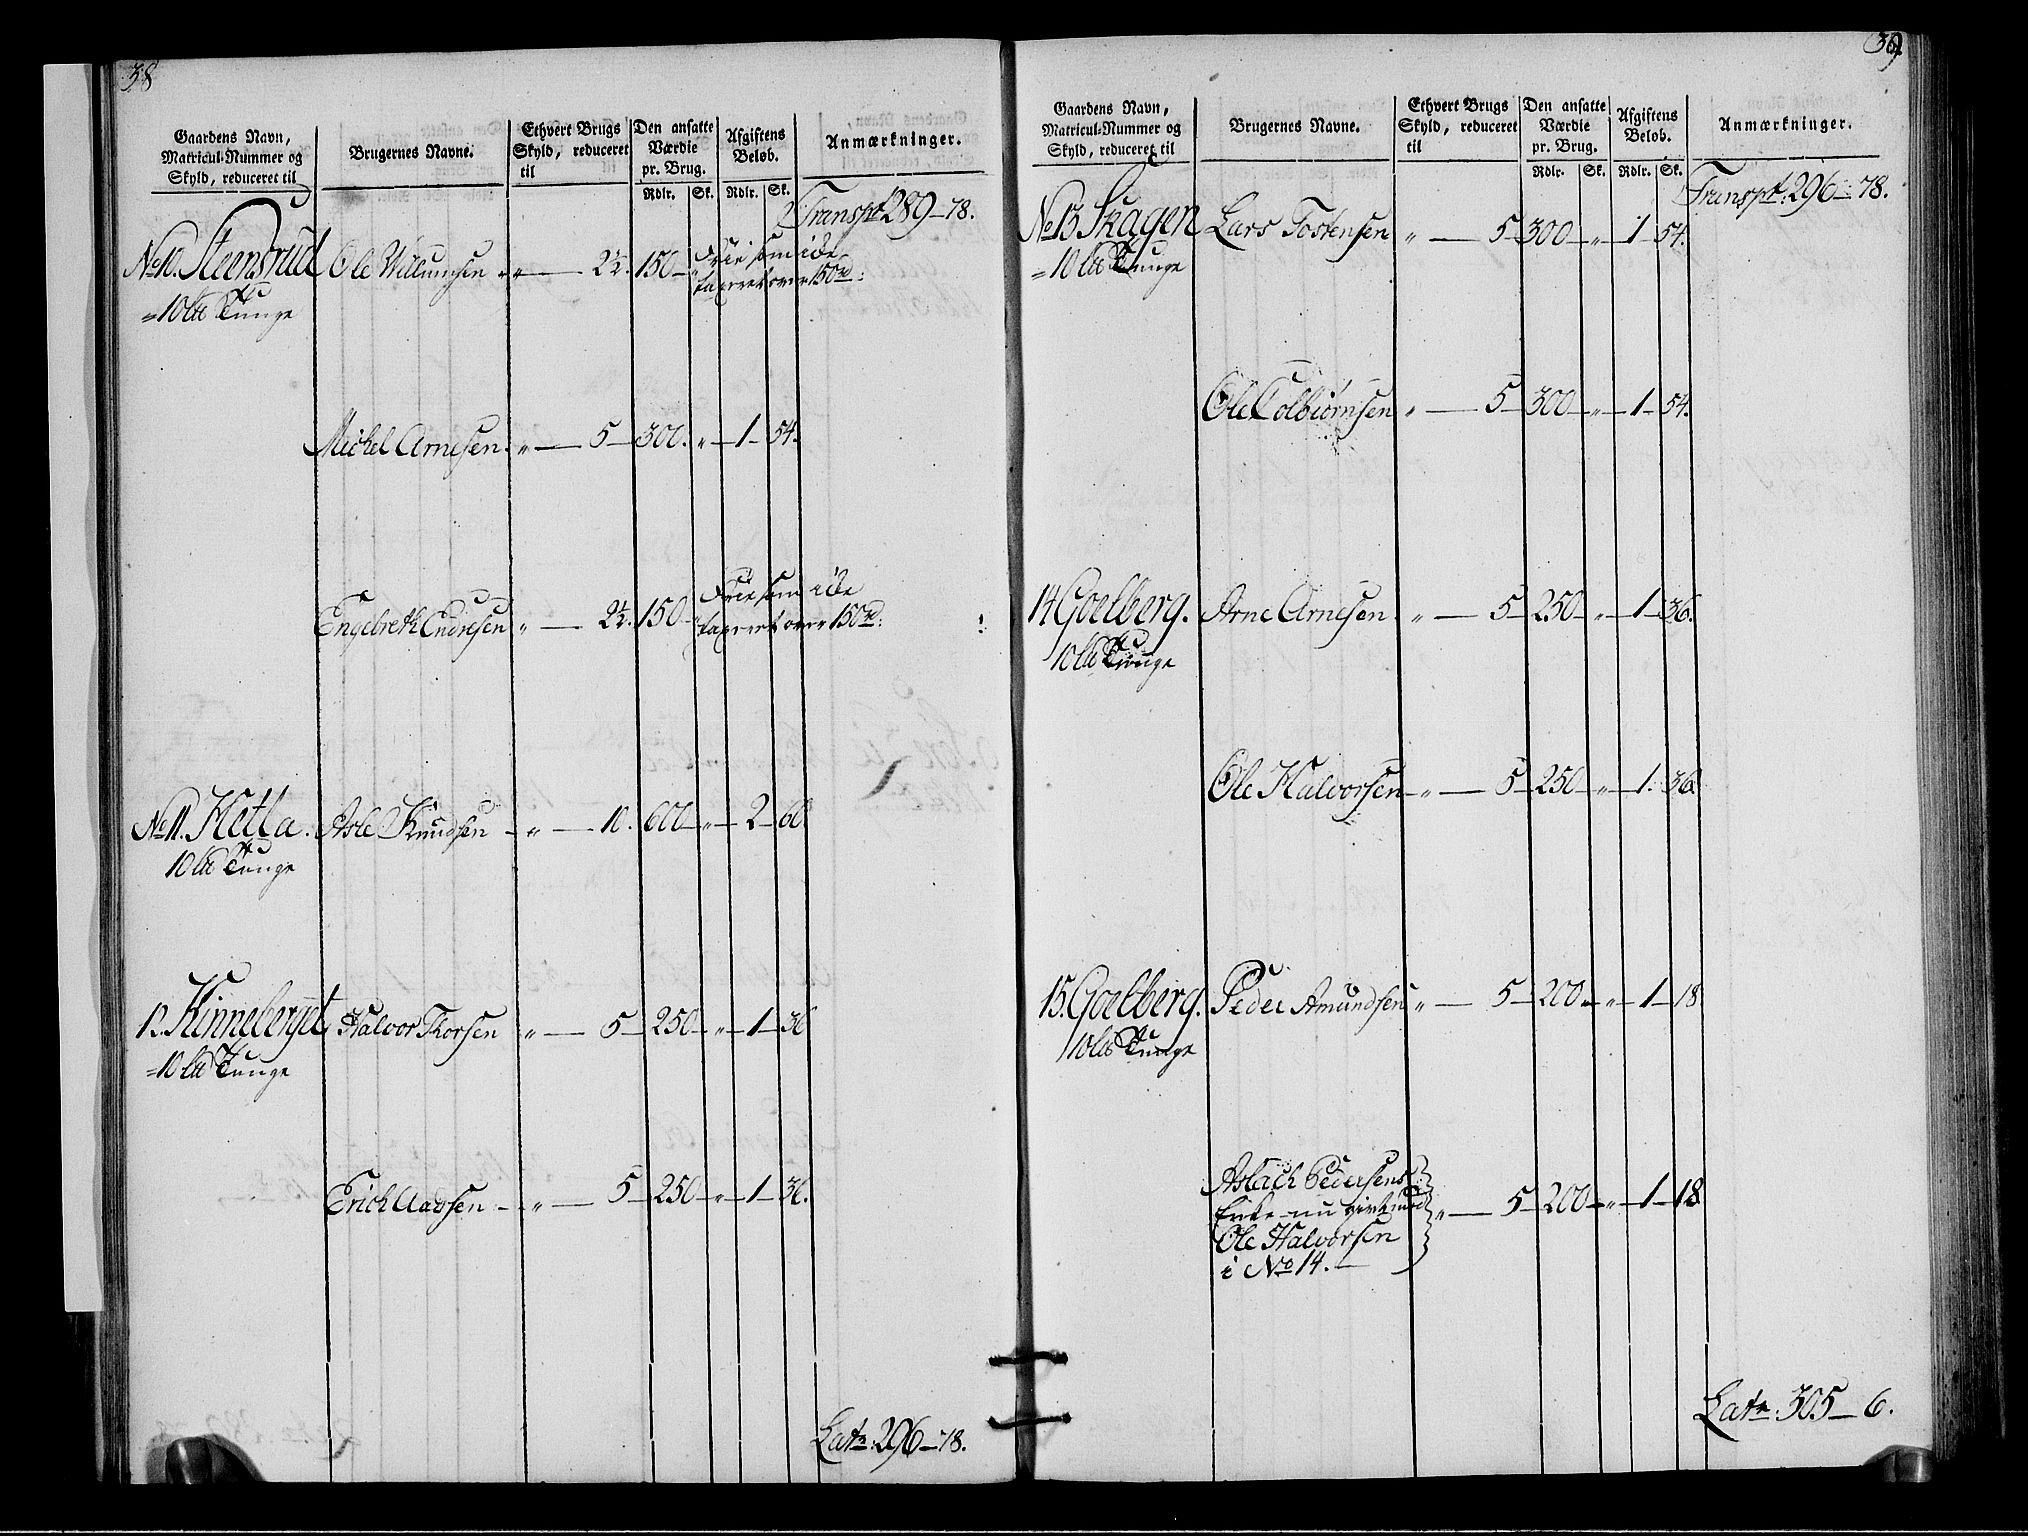 38
Gaardens Navn,
Matricul-Nummer og
Skyld, reduceret til
Brugernes Navne.
Ethvert Brugs
Skyld, reduceret
til
Den ansatte
Værdie
pr. Brug.
Rdlr. Sk.
Afgiftens
Beløb.
Rdlr. Sk.
Anmærkninger.
Transpt 289 – 78.
No 10. Steensrud Ole Willumsen „ — 2½. 150 – „ Frie som icke
taxeret over 150 rd:
= 10 lb Tunge
Michel Arnesen. „ — 5 – 300. „ – 1 – 54.
Engebreth Endresen „ — 2½. 150 – „ Frie som icke
taxeret over 150 rd:
No 11. Hetla. Asle Knudsen – „ — 10. 600 – „ – 2 – 60
10 lb Tunge
12. Kinneberget, Halvor Thorsen „ — 5 – 250 – „ – 1 – 36
= 10 lb Tunge
Erich Aadsen – „ — 5 – 250 – „ – 1 – 36.
Latr: 296 – 78.
39
Gaardens Navn,
Matricul-Nummer og
Skyld, reduceret til
Brugernes Navne.
Ethvert Brugs
Skyld, reduceret
til
Den ansatte
Værdie
pr. Brug.
Rdlr. Sk.
Afgiftens
Beløb.
Rdlr. Sk.
Anmærkninger.
Transpt: 296 – 78.
No 13 Skagen Lars Tostensen „ — 5 – 300 – „ – 1 – 54.
= 10 lb Tunge
Ole Colbiørnsen „ — 5 – 300 – „ – 1 – 54.
14 Goelberg. Arne Arnesen. „ — 5 – 250 – „ – 1 – 36.
10 lb Tunge
Ole Halvorsen – „ — 5 – 250 – „ – 1. 36
15. Goelberg. Peder Amundsen „ — 5 – 200 – „ – 1 – 18
10 lb Tunge
Aslach Pedersens
Enke – nu givt med „ — 5 – 200 – „ – 1 – 18
Ole Halvorsen
i No 14. —
Latr: 305 – 6.